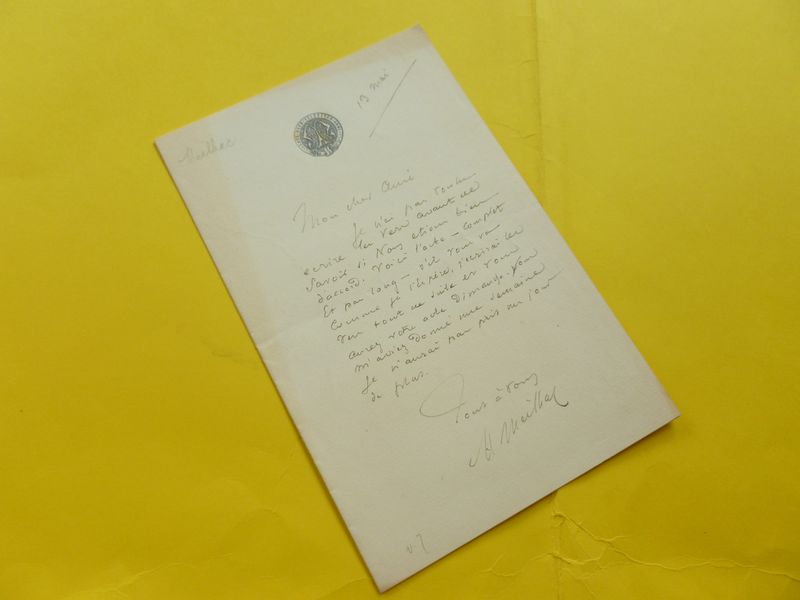 Meilhac
19 mai
Mon cher ami
Je n'ai pas voulu
ecrire les vers avant de
Savoir si nous etions bien
d'accord. Voici l'acte - complet
Et pas long - s'il vous va
comme je l'espère, j'ecrirai les
vers tout de suite et vous
aurez votre acte Dimanche. Vous
m'aviez donné une semaine
Je n'aurai pas pris un jour
de plus.
Tous à vous
H Meilhac